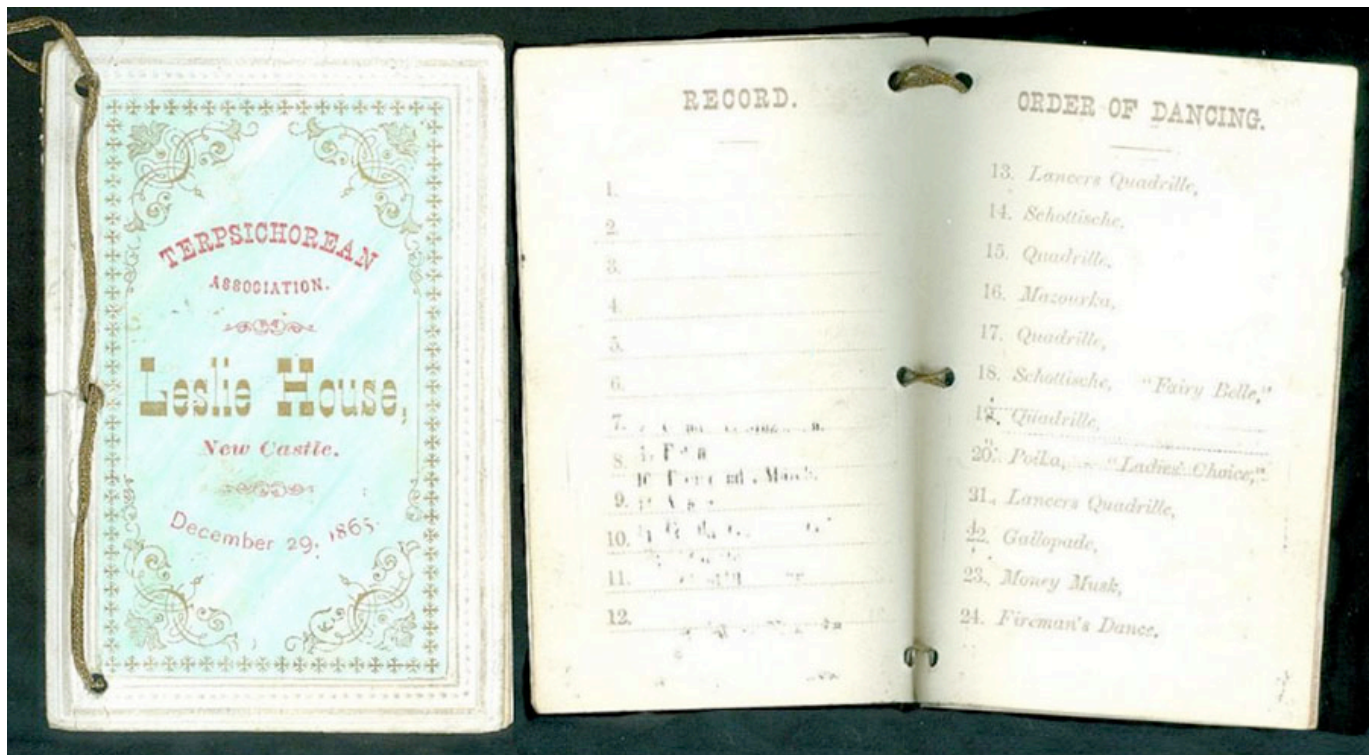 TERPSICHOREAN
ASSOCIATION.
Leslie House,
New Castle.
December 29, 1865.
RECORD.
1.
2.
3.
4.
5.
6.
7.
8.
9.
10.
11.
12.
ORDER OF DANCING.
13. Lancers Quadrille,
14. Schottische,
15. Quadrille,
16. Mazourka,
17. Quadrille,
18. Schottische, "Fairy Belle,"
19. Quadrille,
20. Polka, "Ladies' Choice,"
21. Lancers Quadrille,
22. Gallopade,
23. Money Musk,
24. Fireman's Dance.